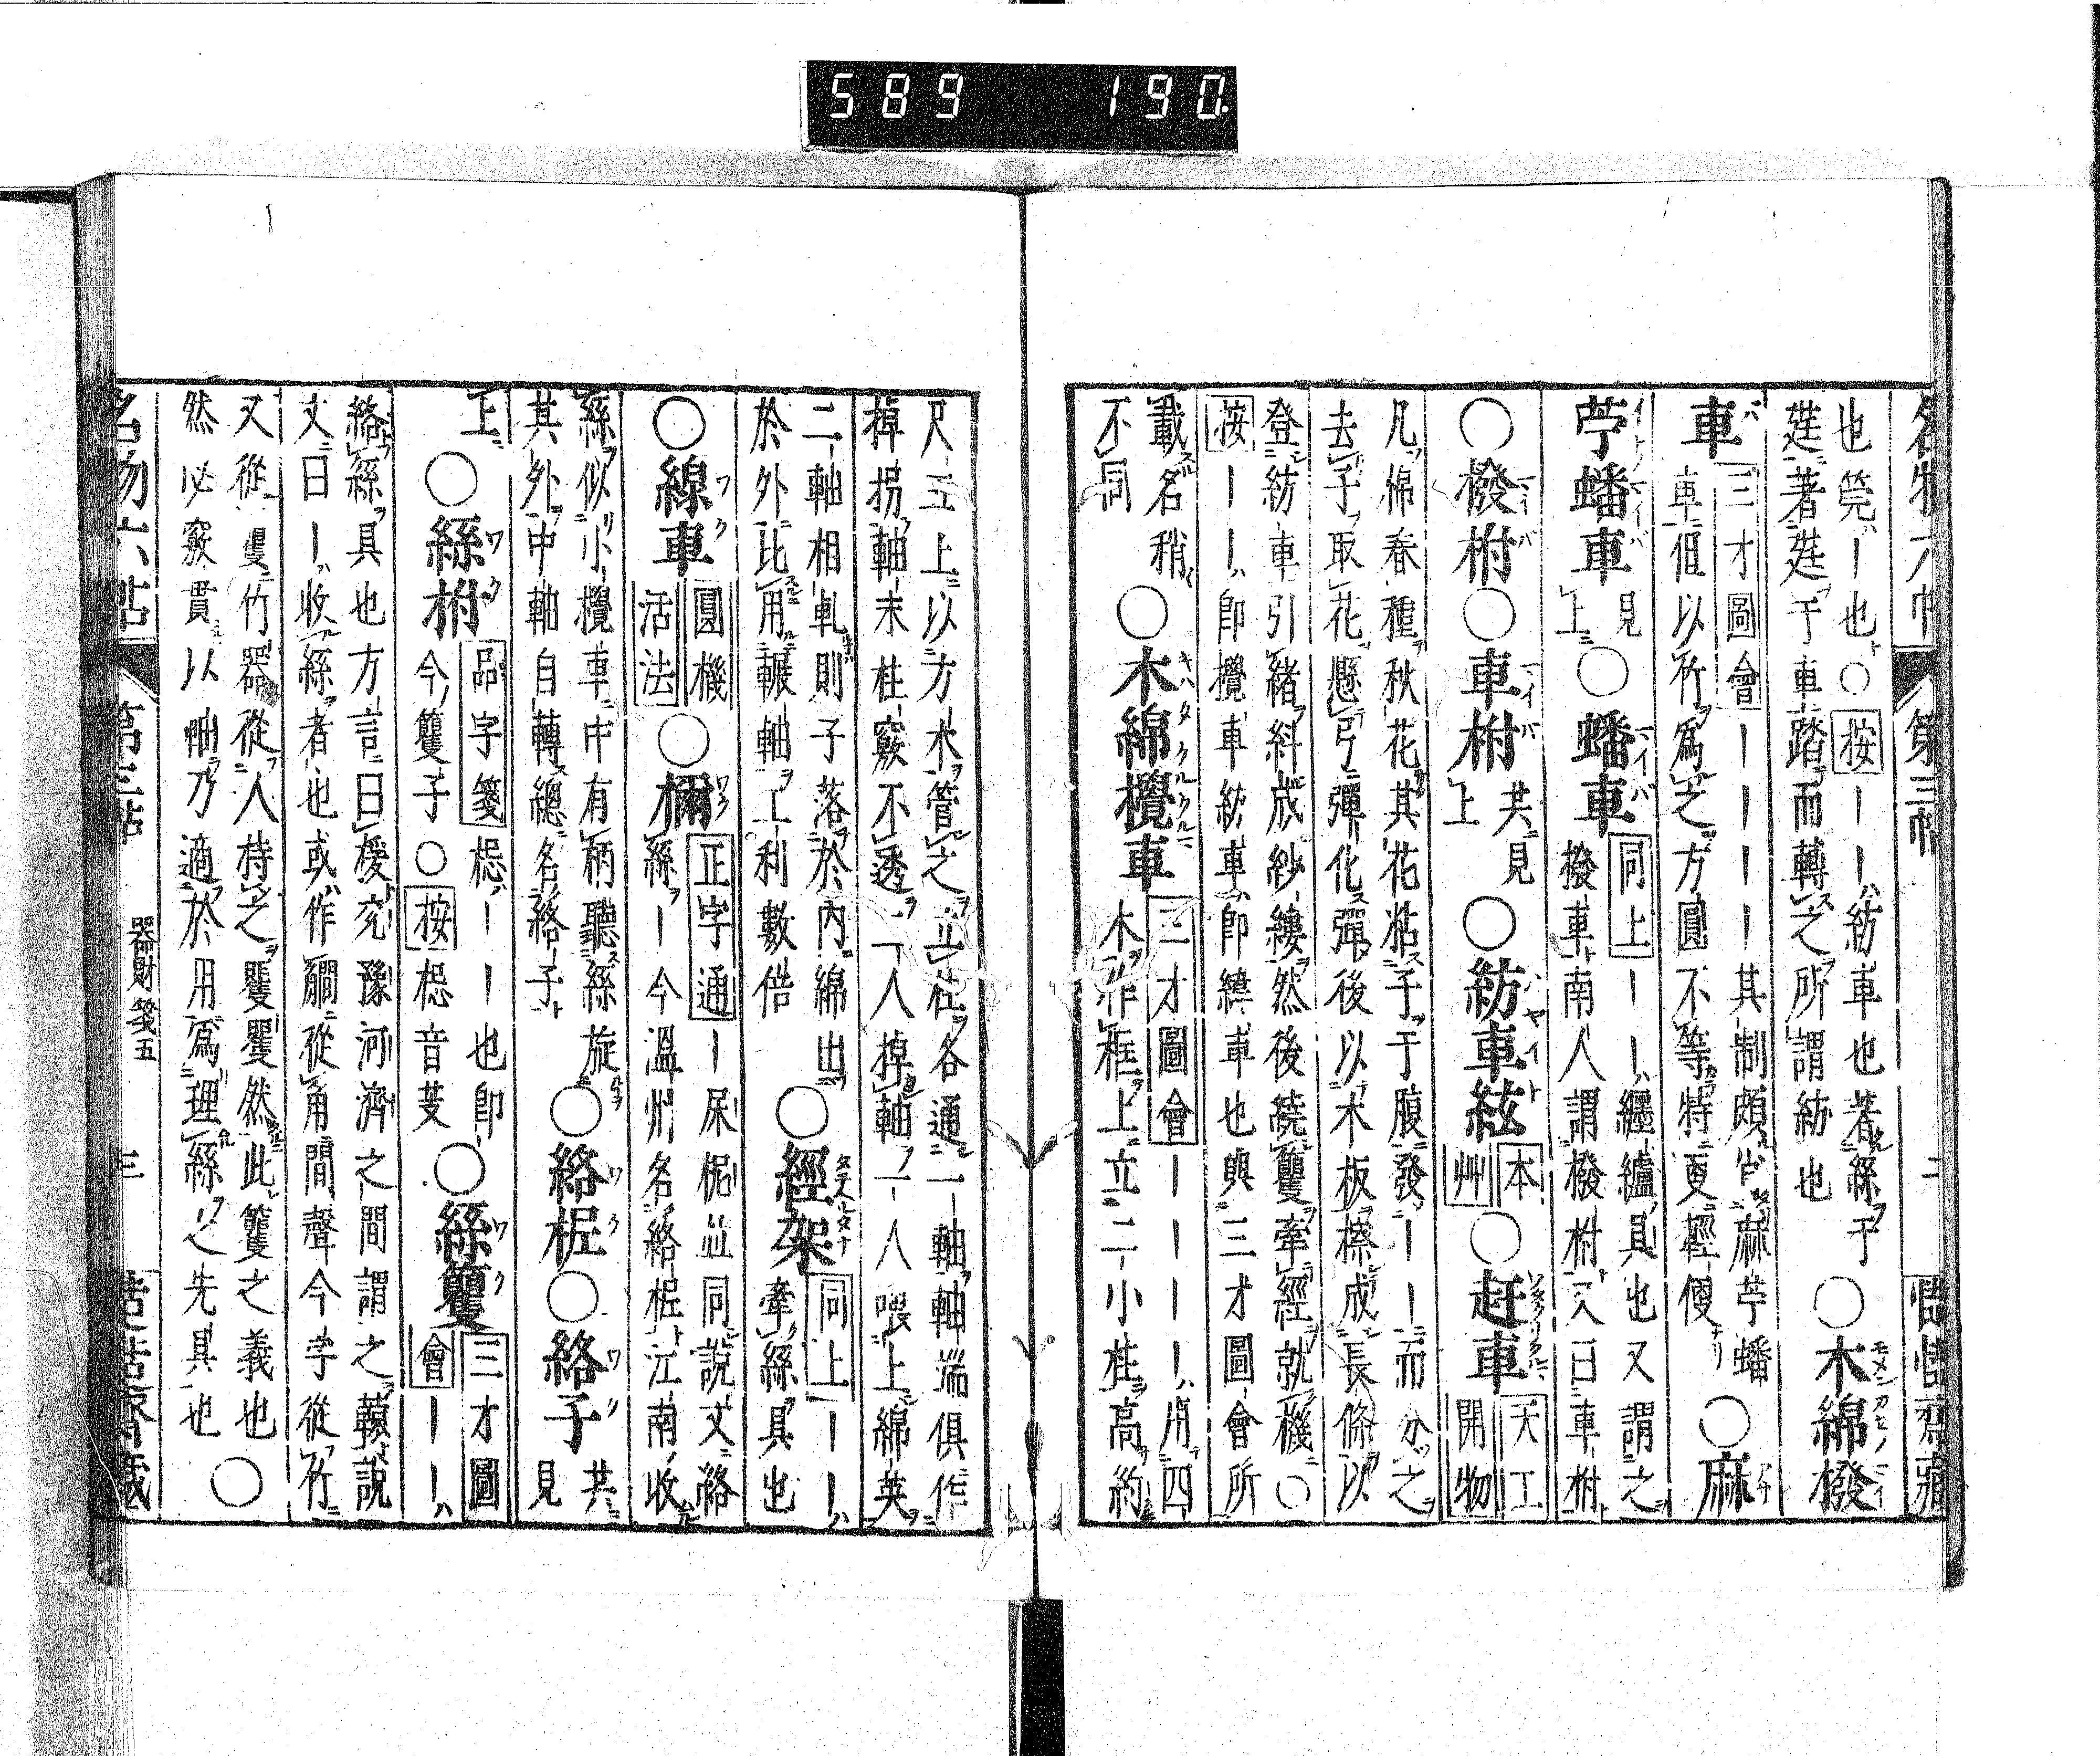 589 190
名物六帖 第三帖 二
也筦ハ一也○按一一ハ紡車也著絲于
莛著莛于車踏而轉之所謂紡也
○木綿撥
車
三才圖會一一一一其制頗
車但以竹爲之方圓不等特更輕便
麻苧蟠
○麻
苧蟠車
見上
○蟠車
同上一一ハ纏纑具也又謂之
撥車南人謂撥柎又曰車柎
○撥柎○車柎
共見上
○紡車絃
本艸
○赶車
天工開物
凡棉春種秋花其花粘子于腹發一一而分之
去子取花懸弓彈化彈後以木板擦成長條以
登紡車引緒糾成紗縷然後繞籰牽經就機○
按一一ハ卽攪車紡車卽緯車也與三才圖會所
載名稍
不同
○木綿攪車
三才圖會一一一一ハ用四
木作框上立二小柱高約
尺五上以方木管之立柱各通一軸軸端俱作
掉拐軸末柱竅不透一人掉軸一人喂上綿英
二軸相軋則子落於內綿出
於外比用輾軸工利數倍
○經架
同上一一ハ
牽絲具也
○線車
圓機活法
○檷
正字通一杘柅竝同說文絡
絲一今溫州名絡梩江南收
絲似小攪車中有柄聽絲旋
其外中軸自轉總名絡子
○絡梩○絡子
共見
上
○絲柎
品字箋梞一一也卽
今籰子○按梞音芰
○絲籰
三才圖會一一ハ
絡絲具也方言曰榬兗豫河濟之間謂之轅說
文曰一收絲者也或作𧤽從角間聲今字從竹
又從矍竹器從人持之矍矍然此籰之義也
然必竅貫以軸乃適於用爲理絲之先具也
○
名物六帖 第三帖 器財箋五 三